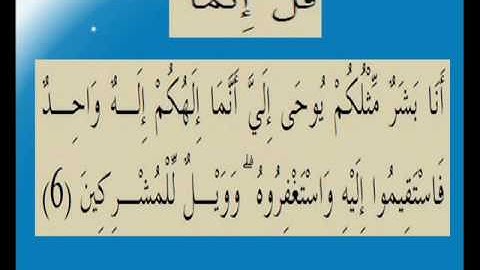 قُلْ إِنَّمَا
أَنَا بَشَرٌ مِّثْلُكُمْ يُوحَى إِلَيَّ أَنَّمَا إِلَهُكُمْ إِلَهٌ وَاحِدٌ
فَاسْتَقِيمُوا إِلَيْهِ وَاسْتَغْفِرُوهُ ۗ وَوَيْلٌ لِّلْمُشْرِكِينَ (6)